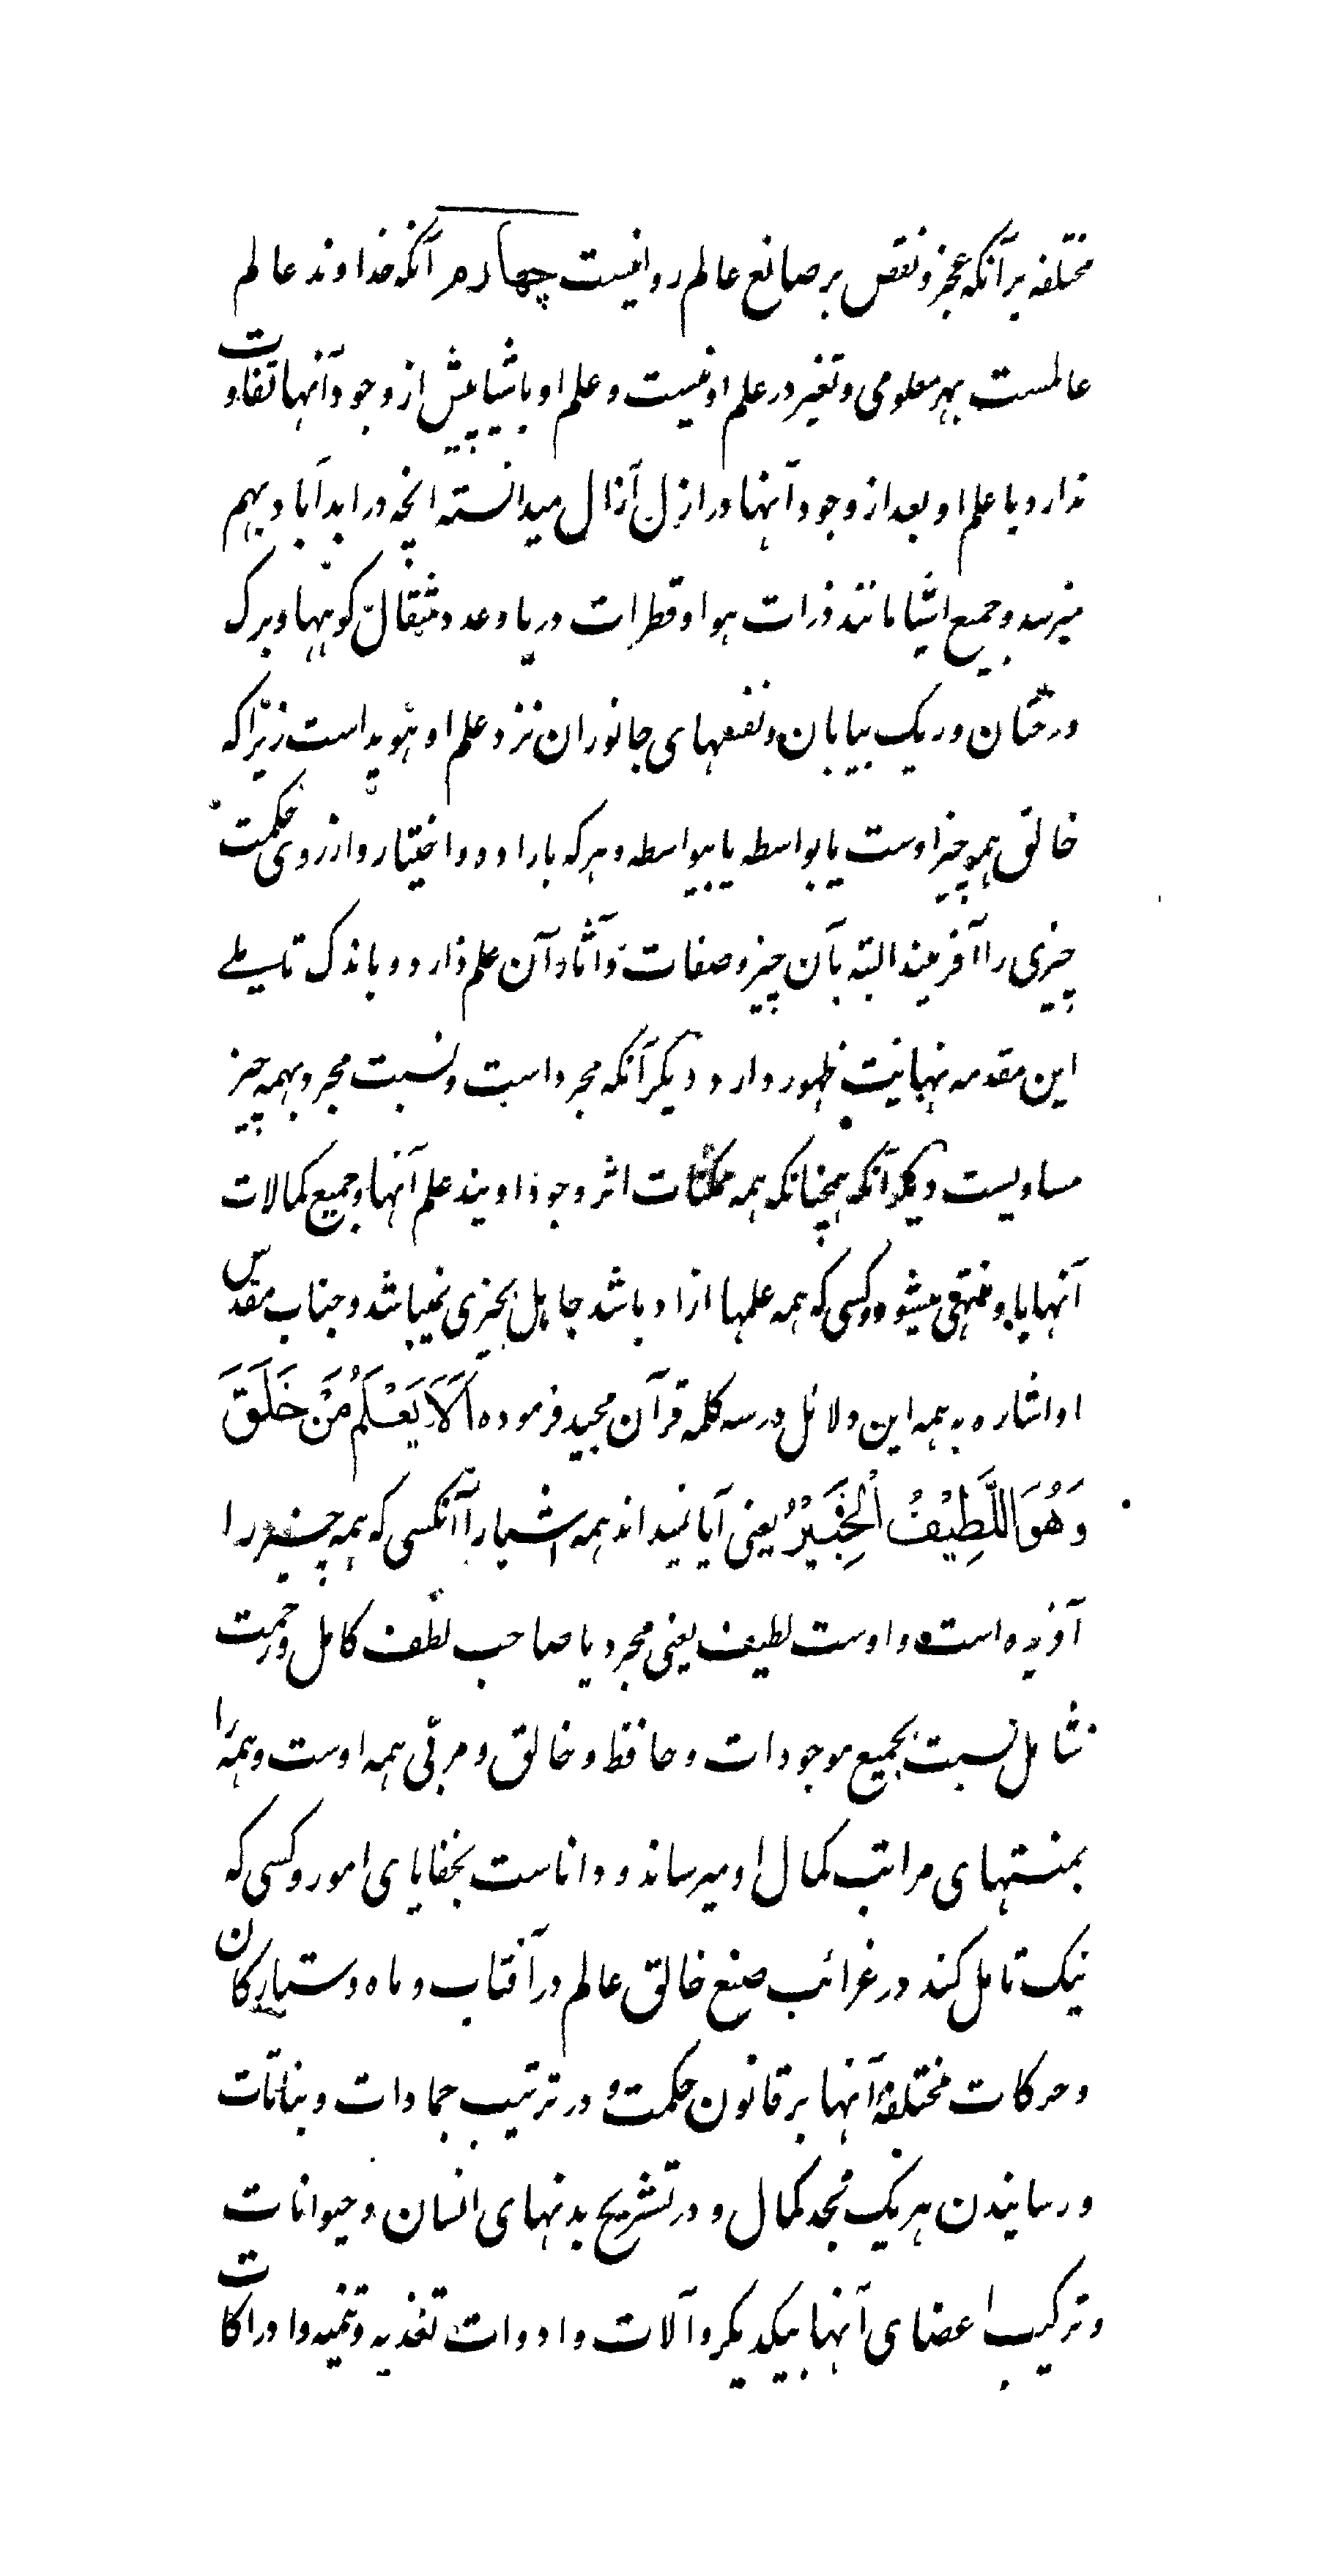 مختلفه برآنکه عجز و نقص بر صانع عالم روا نیست چهارم آنکه خداوند عالم
عالمست بهر معلومی و تغیر در علم او نیست و علم او باشیا پیش از وجود آنها تفاوت
ندارد با علم او بعد از وجود آنها و در ازل آزال میدانسته انچه در ابد آباد بهم
میرسد و جمیع اشیا مانند ذرات هوا و قطرات دریا و عدد مثقال کوهها و برک
درختان و ریک بیابان و نفسهای جانوران نزد علم او هویداست زیرا که
خالق همه چیز اوست یا بواسطه یا بیواسطه و هر که باراده و اختیار و از روی حکمت
چیزی را آفریند البته بآن چیز و صفات و آثار آن علم دارد و باندک تاملے
این مقدمه نهایت ظهور دارد و دیکر آنکه مجرد است و نسبت مجرد بهمه چیز
مساویست دیکر آنکه همچنانکه همه ممکنات اثر وجود اویند علم آنها و جمیع کمالات
آنها باو منتهی میشود و کسی که همه علمها ازاو باشد جاهل بچیزی نمیباشد و جناب مقدس
او اشاره به همه این دلائل در سه کلمه قرآن مجید فرموده اَلَا يَعْلَمُ مَنْ خَلَقَ
وَهُوَ اللَّطِيْفُ الْخَبِيْرُ یعنی آیا نمیداند همه اشیا را آنکسی که همه چیز را
آفریده است و اوست لطیف یعنی مجرد یا صاحب لطف کامل و رحمت
شامل نسبت بجمیع موجودات و حافظ و خالق و مربّی همه اوست و همه را
بمنتهای مراتب کمال او میرساند و داناست بخفایای امور و کسی که
نیک تامل کند در غرائب صنع خالق عالم در آفتاب و ماه و ستارکان
و حرکات مختلفهٔ آنها بر قانون حکمت و در ترتیب جمادات و نباتات
و رسانیدن هر یک بحد کمال و در تشریح بدنهای انسان و حیوانات
و ترکیب اعضای آنها بیکدیکر و آلات و ادوات تغذیه و تنمیه و ادراکات